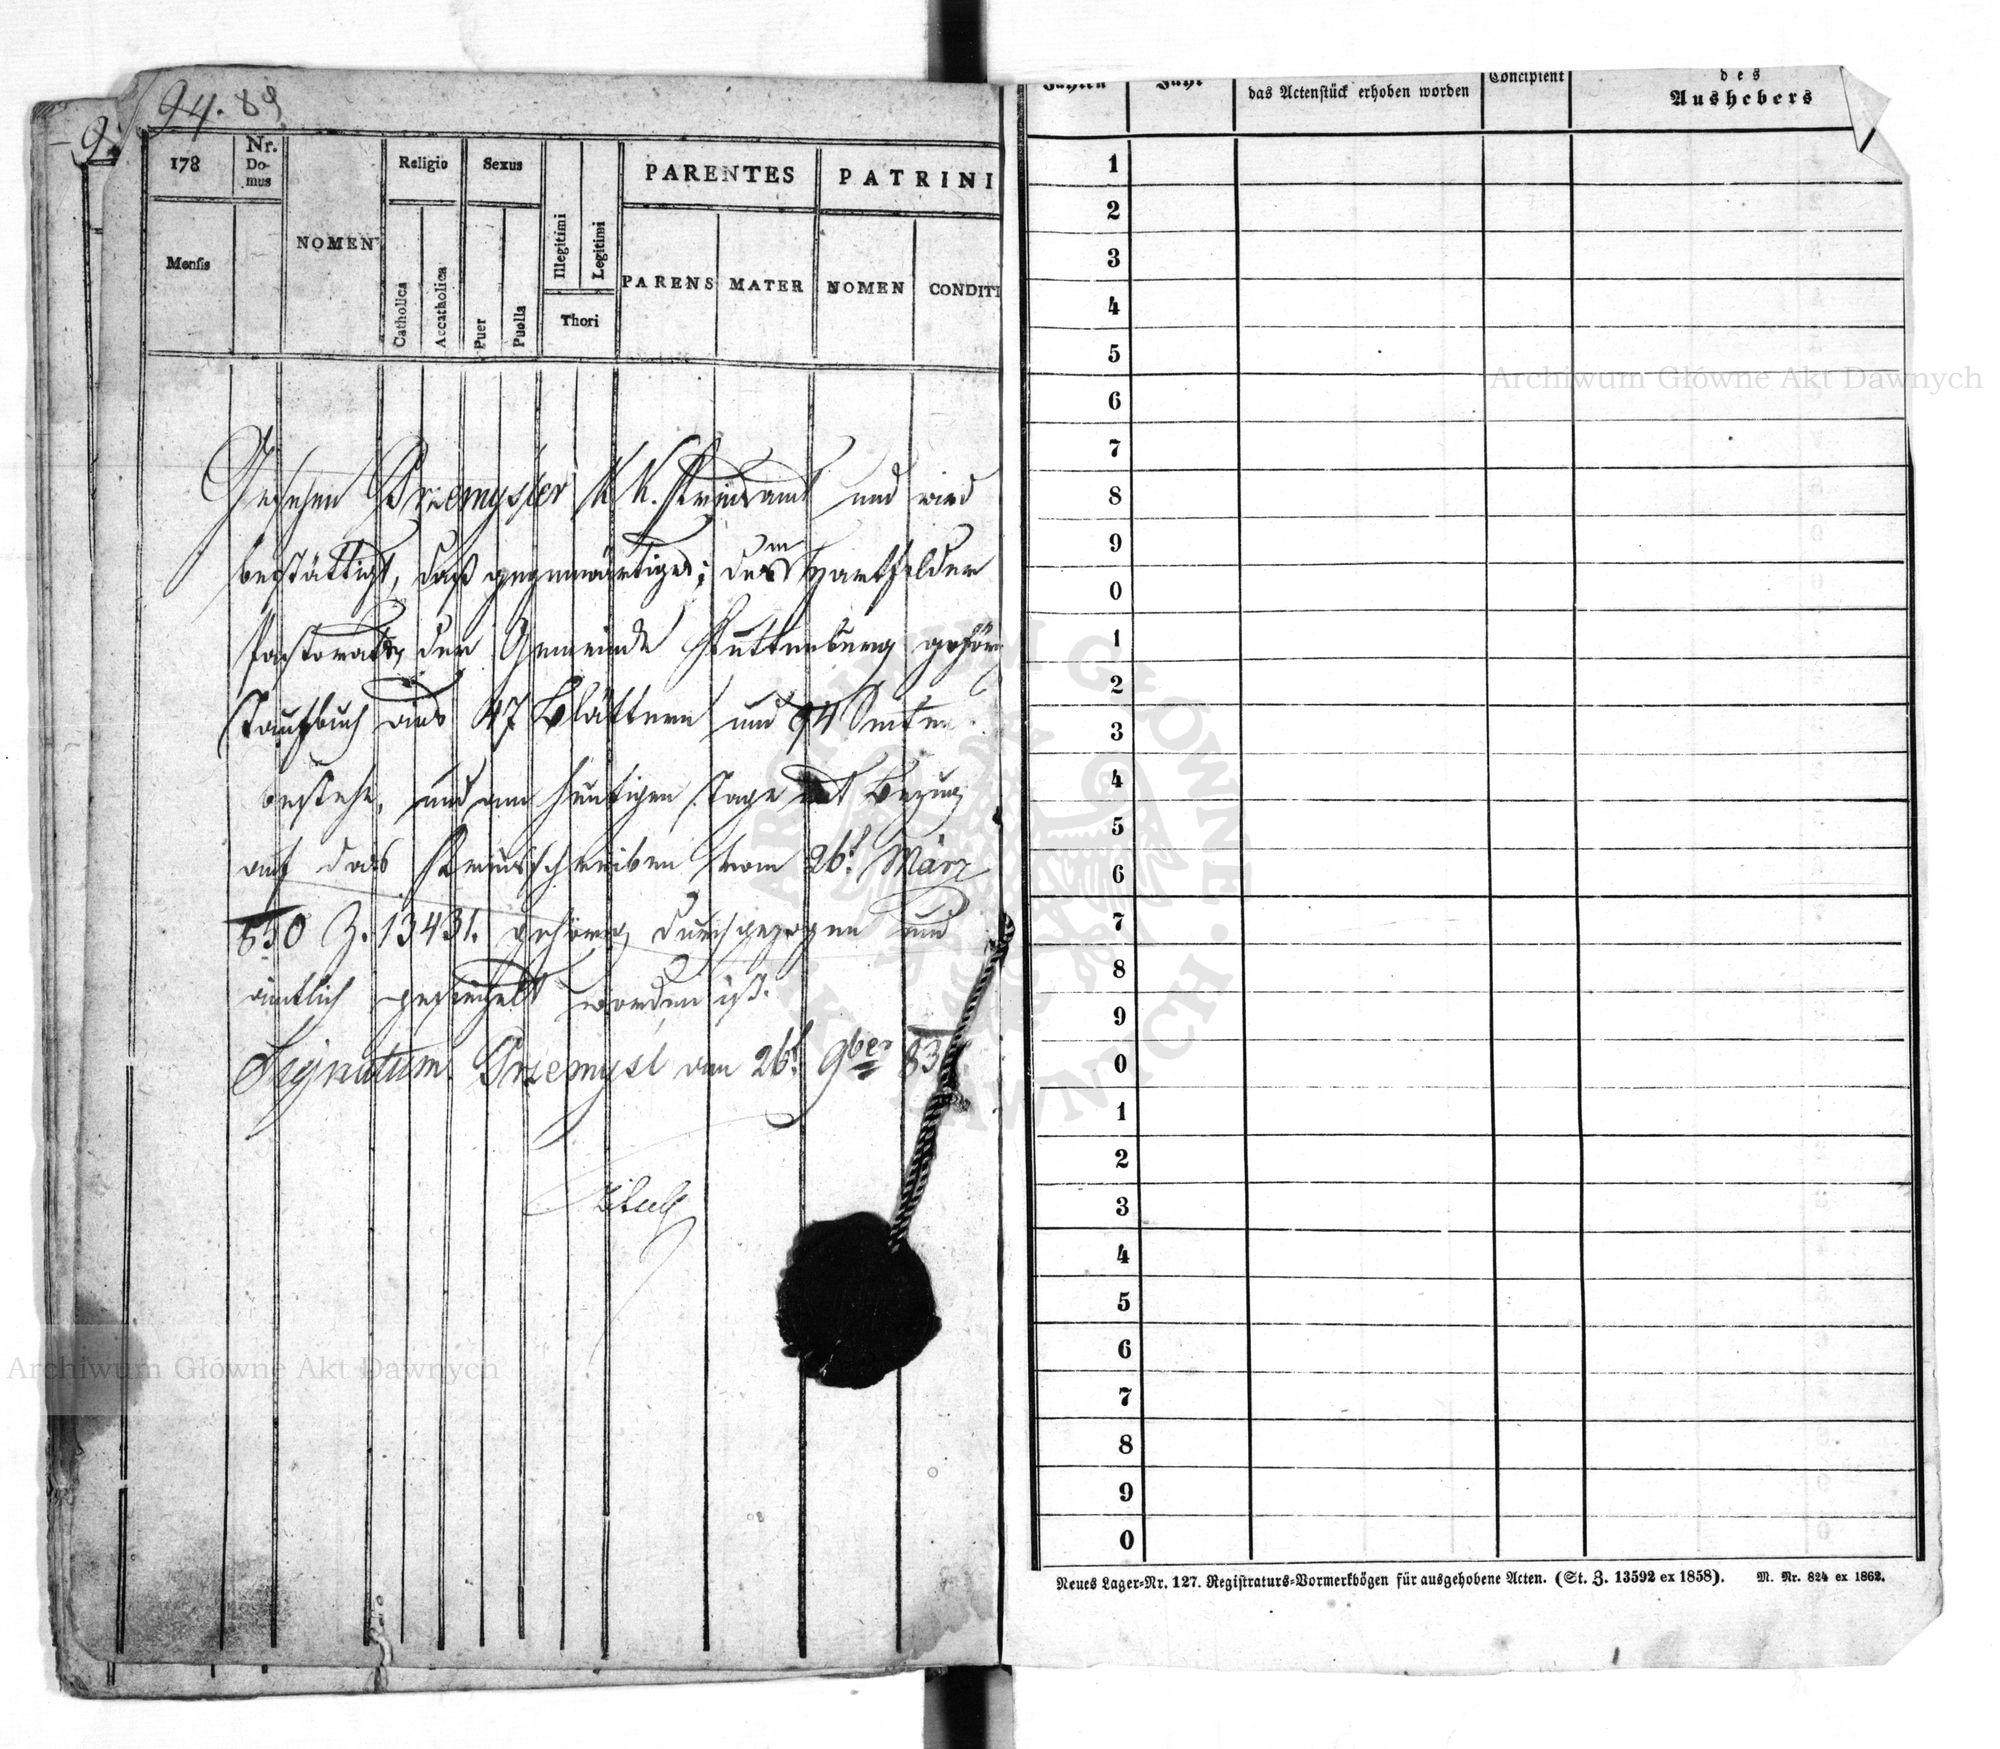 94. 89
178
Nr.
Do-
mus
NOMEN
Religio
Sexus
Illegitimi
Legitimi
PARENTES
PATRINI
Mensis
Catholica
Accatholica
Puer
Puella
Thori
PARENS
MATER
NOMEN
CONDITI
Gesehen Przemysler K. K. Kreisamt und wird
bestättigt, daß gegenwärtiges; dem Hartfelder
Pastorate, der Gemeinde
Taufbuch aus 47 Blättern und 94 Seiten
bestehe, und am heutigen Tage mit Bezug
auf das Kreisschreiben vom 26t. März
830 Z. 13431. gehörig durchgezogen und
amtlich gesiegelt worden ist.
Signatum Przemysl am 26t. 9ber 83
Jahr
das Actenstück erhoben worden
Concipient
des
Aushebers
1
2
3
4
5
6
7
8
9
0
1
2
3
4
5
6
7
8
9
0
1
2
3
4
5
6
7
8
9
0
Neues Lager-Nr. 127. Registraturs-Vormerkbögen für ausgehobene Acten. (St. Z. 13592 ex 1858). M. Nr. 824 ex 1862.
Archiwum Główne Akt Dawnych
Archiwum Główne Akt Dawnych
ARCHIWUM GŁÓWNE AKT DAWNYCH